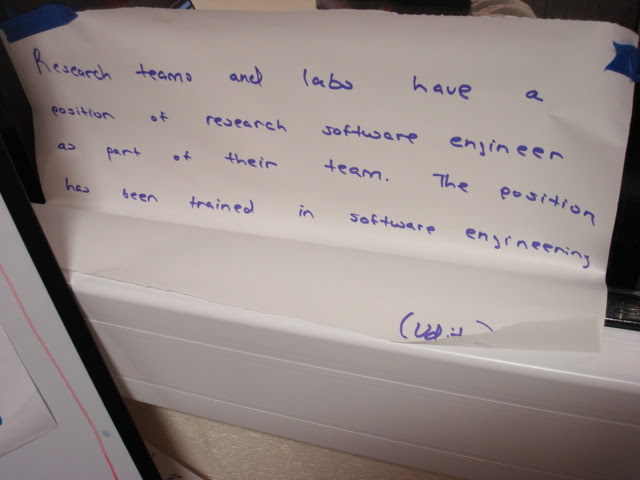 Research teams and labs have a
position of research software engineer
as part of their team. The position
has been trained in software engineering